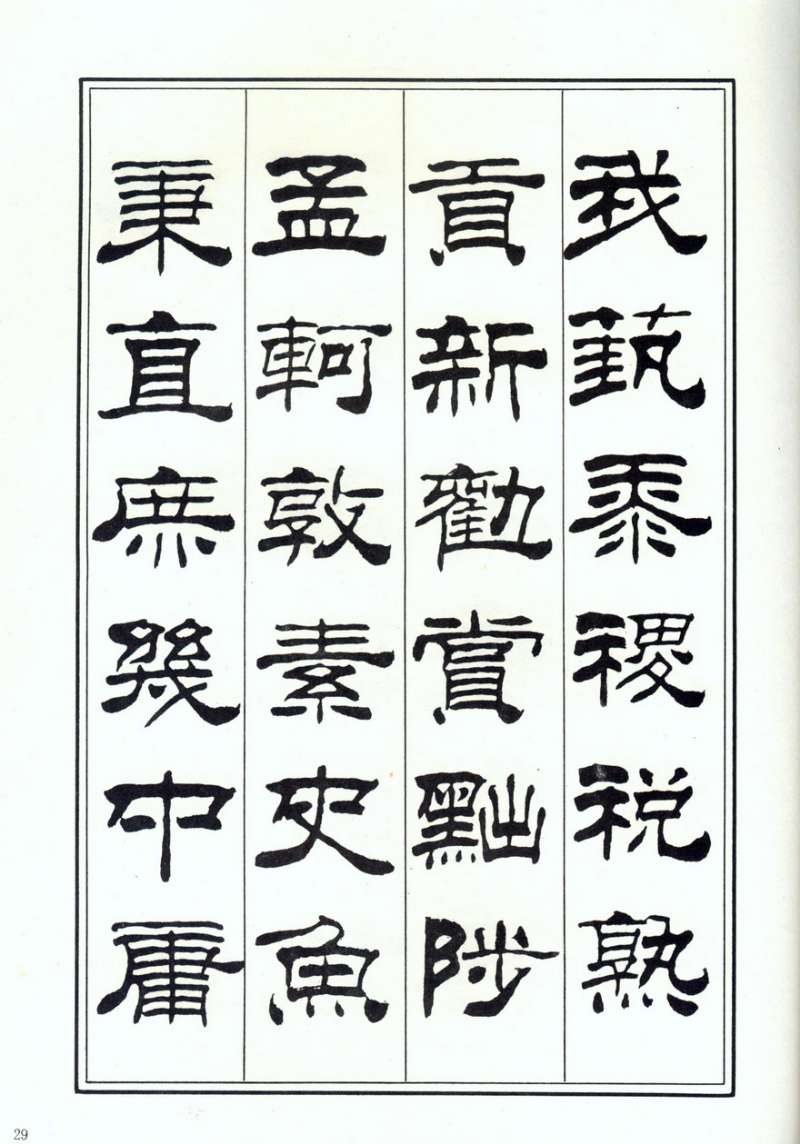 我藝黍稷税熟
貢新勸賞黜陟
孟軻敦素史魚
秉直庶幾中庸
29